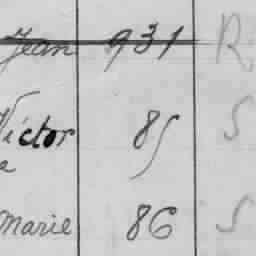 Jean 931 R
Victor 85 S
a
Marie 86 S